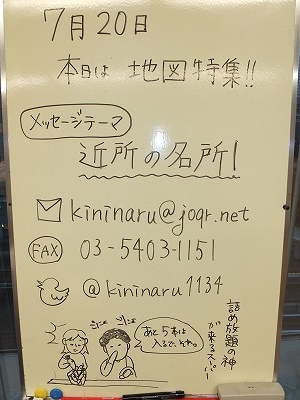 7月20日
本日は 地図特集!!
メッセージテーマ
近所の名所!
kininaru@joqr.net
FAX 03-5403-1151
@kininaru1134
詰め放題の神
が来るスーパー
あと5本は
入るで、それ。